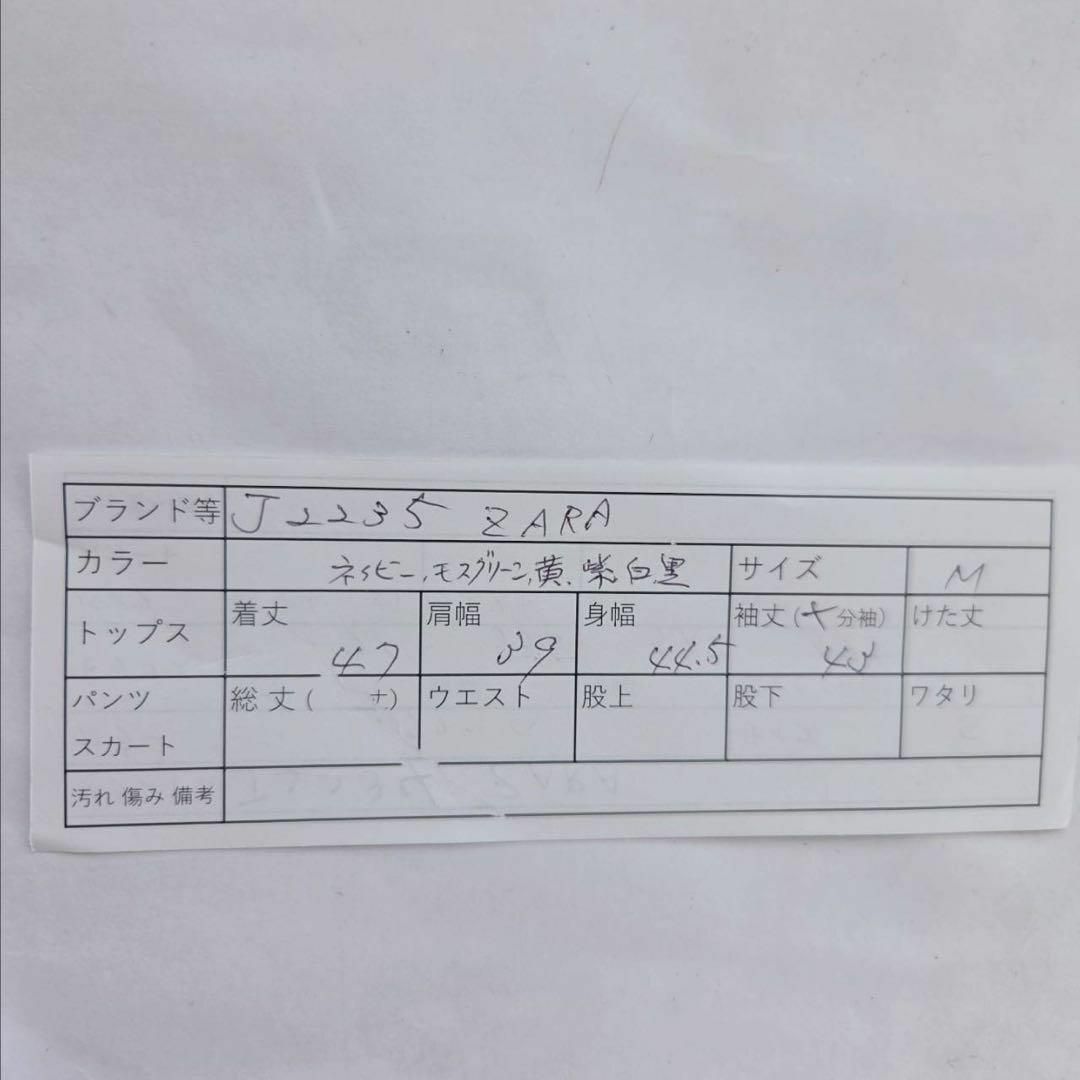 ブランド等 J2235 ZARA
カラー ネイビー,モスグリーン,黄,紫,白黒 サイズ M
トップス 着丈 47 肩幅 39 身幅 44.5 袖丈(七分袖) 43 けた丈
パンツ スカート 総丈( ) ウエスト 股上 股下 ワタリ
汚れ 傷み 備考